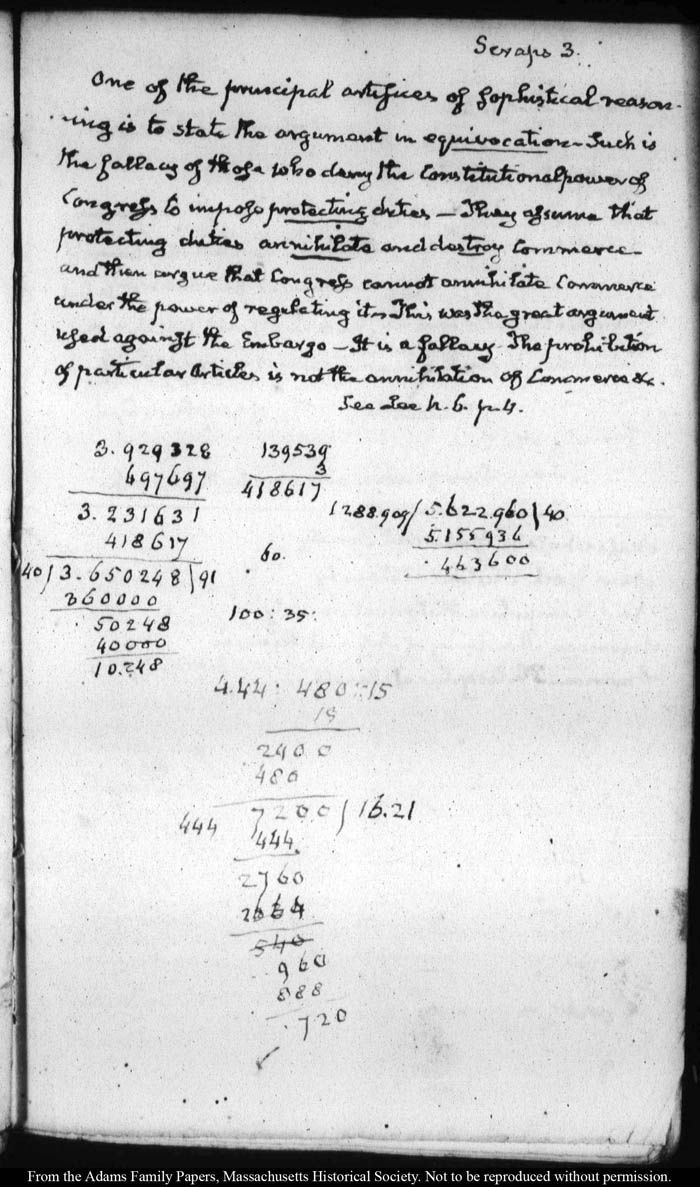 Scraps 3.
One of the principal artifices of sophistical reason-
ing is to state the argument in equivocation – Such is
the fallacy of those who deny the Constitutional power of
Congress to impose protecting duties – They assume that
protecting duties annihilate and destroy Commerce –
and then argue that Congress cannot annihilate Commerce
under the power of regulating it – This was the great argument
used against the Embargo – It is a fallacy. The prohibition
of particular Articles is not the annihilation of Commerce &c.
See h. 6. p. 4.
3.929328
497697
3.231631
418617
40 / 3.650248 \ 91
360000
50248
40000
10.248
139539
3
418617
60.
100 : 35 :
1288.909 / 5.622.960 \ 40
5.155936
463600
4.44 : 480 :: 15
15
2400
480
444 7200 / 16.21
444
2760
2664
540
960
888
720
From the Adams Family Papers, Massachusetts Historical Society. Not to be reproduced without permission.